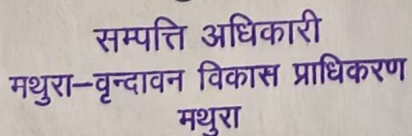 सम्पत्ति अधिकारी
मथुरा-वृन्दावन विकास प्राधिकरण
मथुरा